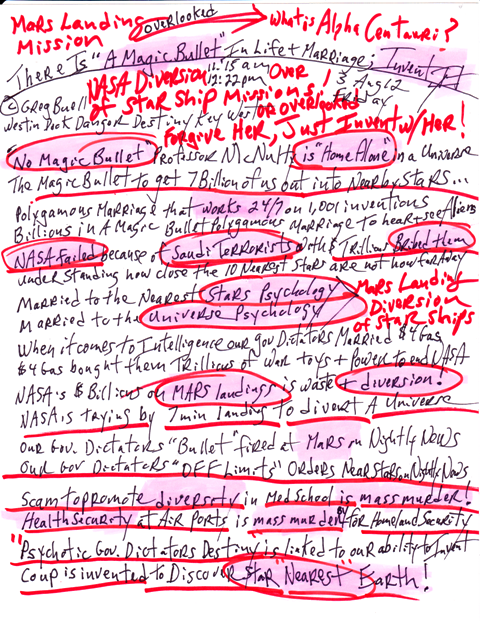 Mars Landing overlooked What is Alpha Centauri?
Mission
There Is "A Magic Bullet" In Life + Marriage; Invent It
NASA Diversion 12:15 am Over
12:22 pm 3 Aug 12
of Star Ship Missions! Friday
© Greg Buell or overlooked
Westin Dock Dangor Destiny Key West
Forgive Her, Just Invent w/ Her!
"No Magic Bullet" Professor McNutt is "Home Alone" in a Universe
The Magic Bullet to get 7 Billion of us out into Nearby Stars...
Polygamous Marriage that works 24/7 on 1,001 inventions
Billions in A Magic Bullet Polygamous marriage to hear + see Aliens
NASA Failed because of Saudi Terrorists with $ Trillions Bribed them
understanding how close the 10 Nearest Stars are not how far away
Married to the Nearest Stars Psychology Mars Landing
Married to the Universe Psychology Diversion
of Star Ships
When it comes to Intelligence our gov Dictators Married $4 Gas
$4 Gas bought them Trillions of War toys + Power to end NASA
NASA's $ Billions on MARS landings is waste + diversion!
NASA is trying by 7 min landing to divert A Universe
Our Gov. Dictators "Bullet" fired at Mars on Nightly News
Our Gov Dictators "OFF Limits" Orders Near Stars on Nightly News
Scam to promote diversity in Med School is mass murder!
Health Security at Air Ports is mass murder by for Homeland Security
"Psychotic Gov. Dictators Destiny" is linked to our ability to Invent
Coup is invented to Discover Star "Nearest" Earth!